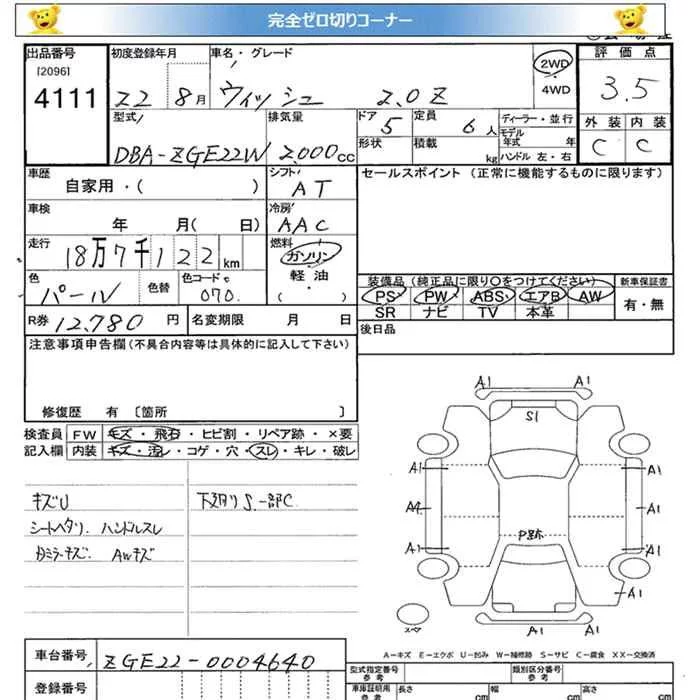 完全ゼロ切りコーナー
出品番号 初度登録年月 車名・グレード 評価点
[2096]
4111 22 8月 ウィッシュ 2.0 Z 2WD 4WD 3.5
型式 排気量 ドア 5 定員 6人 ディーラー・並行 外装 内装
DBA-ZGE22W 2,000cc 形状 積載 kg モデル年式 年 ハンドル 左・右 C C
車歴 シフト セールスポイント (正常に機能するものに限ります)
自家用・( ) AT
車検 冷房
年 月( 日) AAC
走行 燃料
18万7千122km ガソリン
軽油
( ・ )
色 色替 色コード 装備品 (純正品に限り○をつけてください) 新車保証書
パール 070 PS PW ABS エアB AW 有・無
SR ナビ TV 本革
R券 12,780 円 名変期限 月 日 後日品
注意事項申告欄 (不具合内容等は具体的に記入して下さい)
修復歴 有 〔箇所 〕
検査員 FW キズ・飛石・ヒビ割・リペア跡・×要
記入欄 内装 キズ・汚レ・コゲ・穴・スレ・キレ・破レ
キズU 下廻りS.一部C
シートヘタリ. ハンドルスレ
Rミラーキズ. AWキズ
A1 A1
S1
A1 A1
A4 A1
P跡
A1 A1
A1
スペア A1 A1
A-キズ E-エクボ U-凹み W-補修跡 S-サビ C-腐食 XX-交換済
車台番号 ZGE22-0004640
型式指定番号 参考 類別区分番号 参考
登録番号 車庫証明用 参考 長さ cm 幅 cm 高さ cm